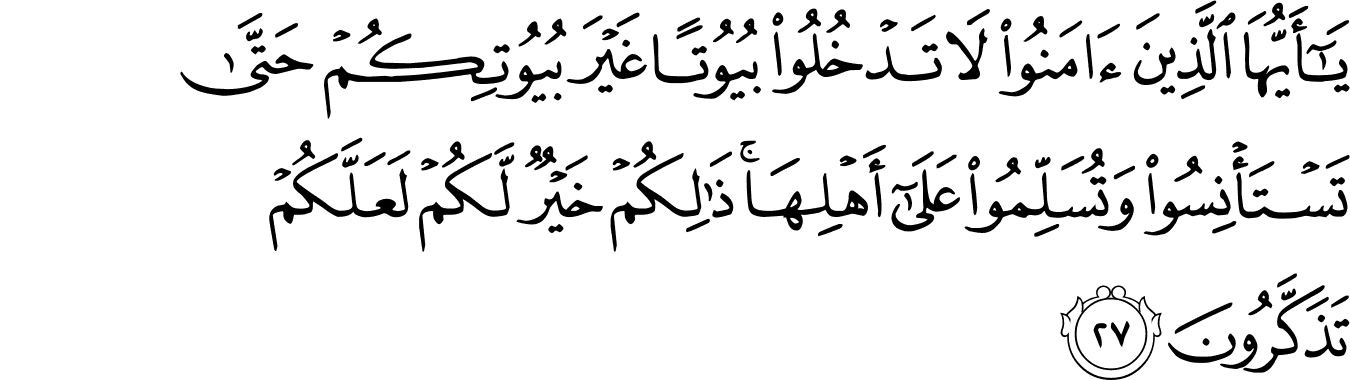 يَـٰٓأَيُّهَا ٱلَّذِينَ ءَامَنُوا۟ لَا تَدْخُلُوا۟ بُيُوتًا غَيْرَ بُيُوتِكُمْ حَتَّىٰ
تَسْتَأْنِسُوا۟ وَتُسَلِّمُوا۟ عَلَىٰٓ أَهْلِهَا ۚ ذَٰلِكُمْ خَيْرٌ لَّكُمْ لَعَلَّكُمْ
تَذَكَّرُونَ ٢٧